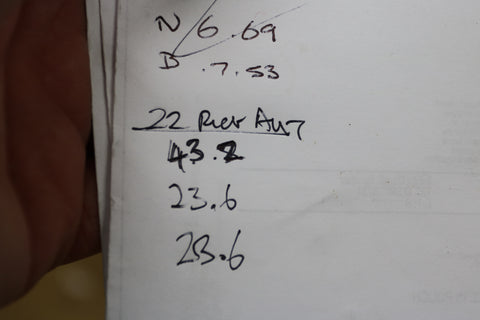 N 6.69
B .7.53
22 Rev Aut
43.2
23.6
23.6